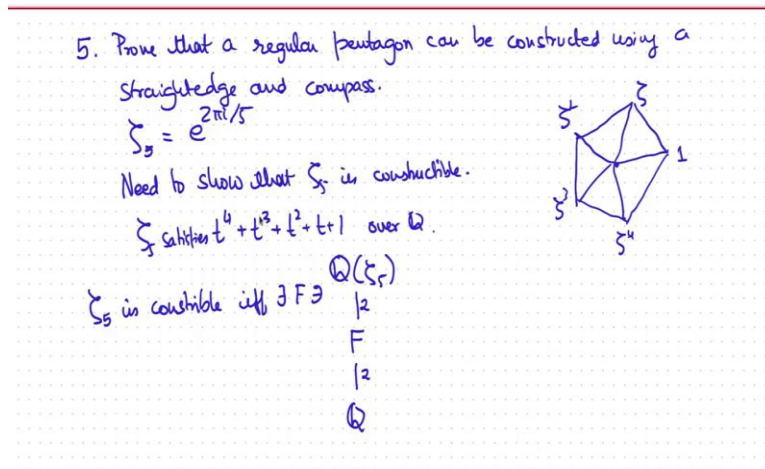 5. Prove that a regular pentagon can be constructed using a
straightedge and compass.
ζ₅ = e^{2πi/5}
Need to show that ζ₅ is constructible.
ζ₅ satisfies t⁴ + t³ + t² + t + 1 over ℚ.
ζ₅ is constrible iff ∃ F ∋
ℚ(ζ₅)
|2
F
|2
ℚ
ζ
ζ²
1
ζ³
ζ⁴